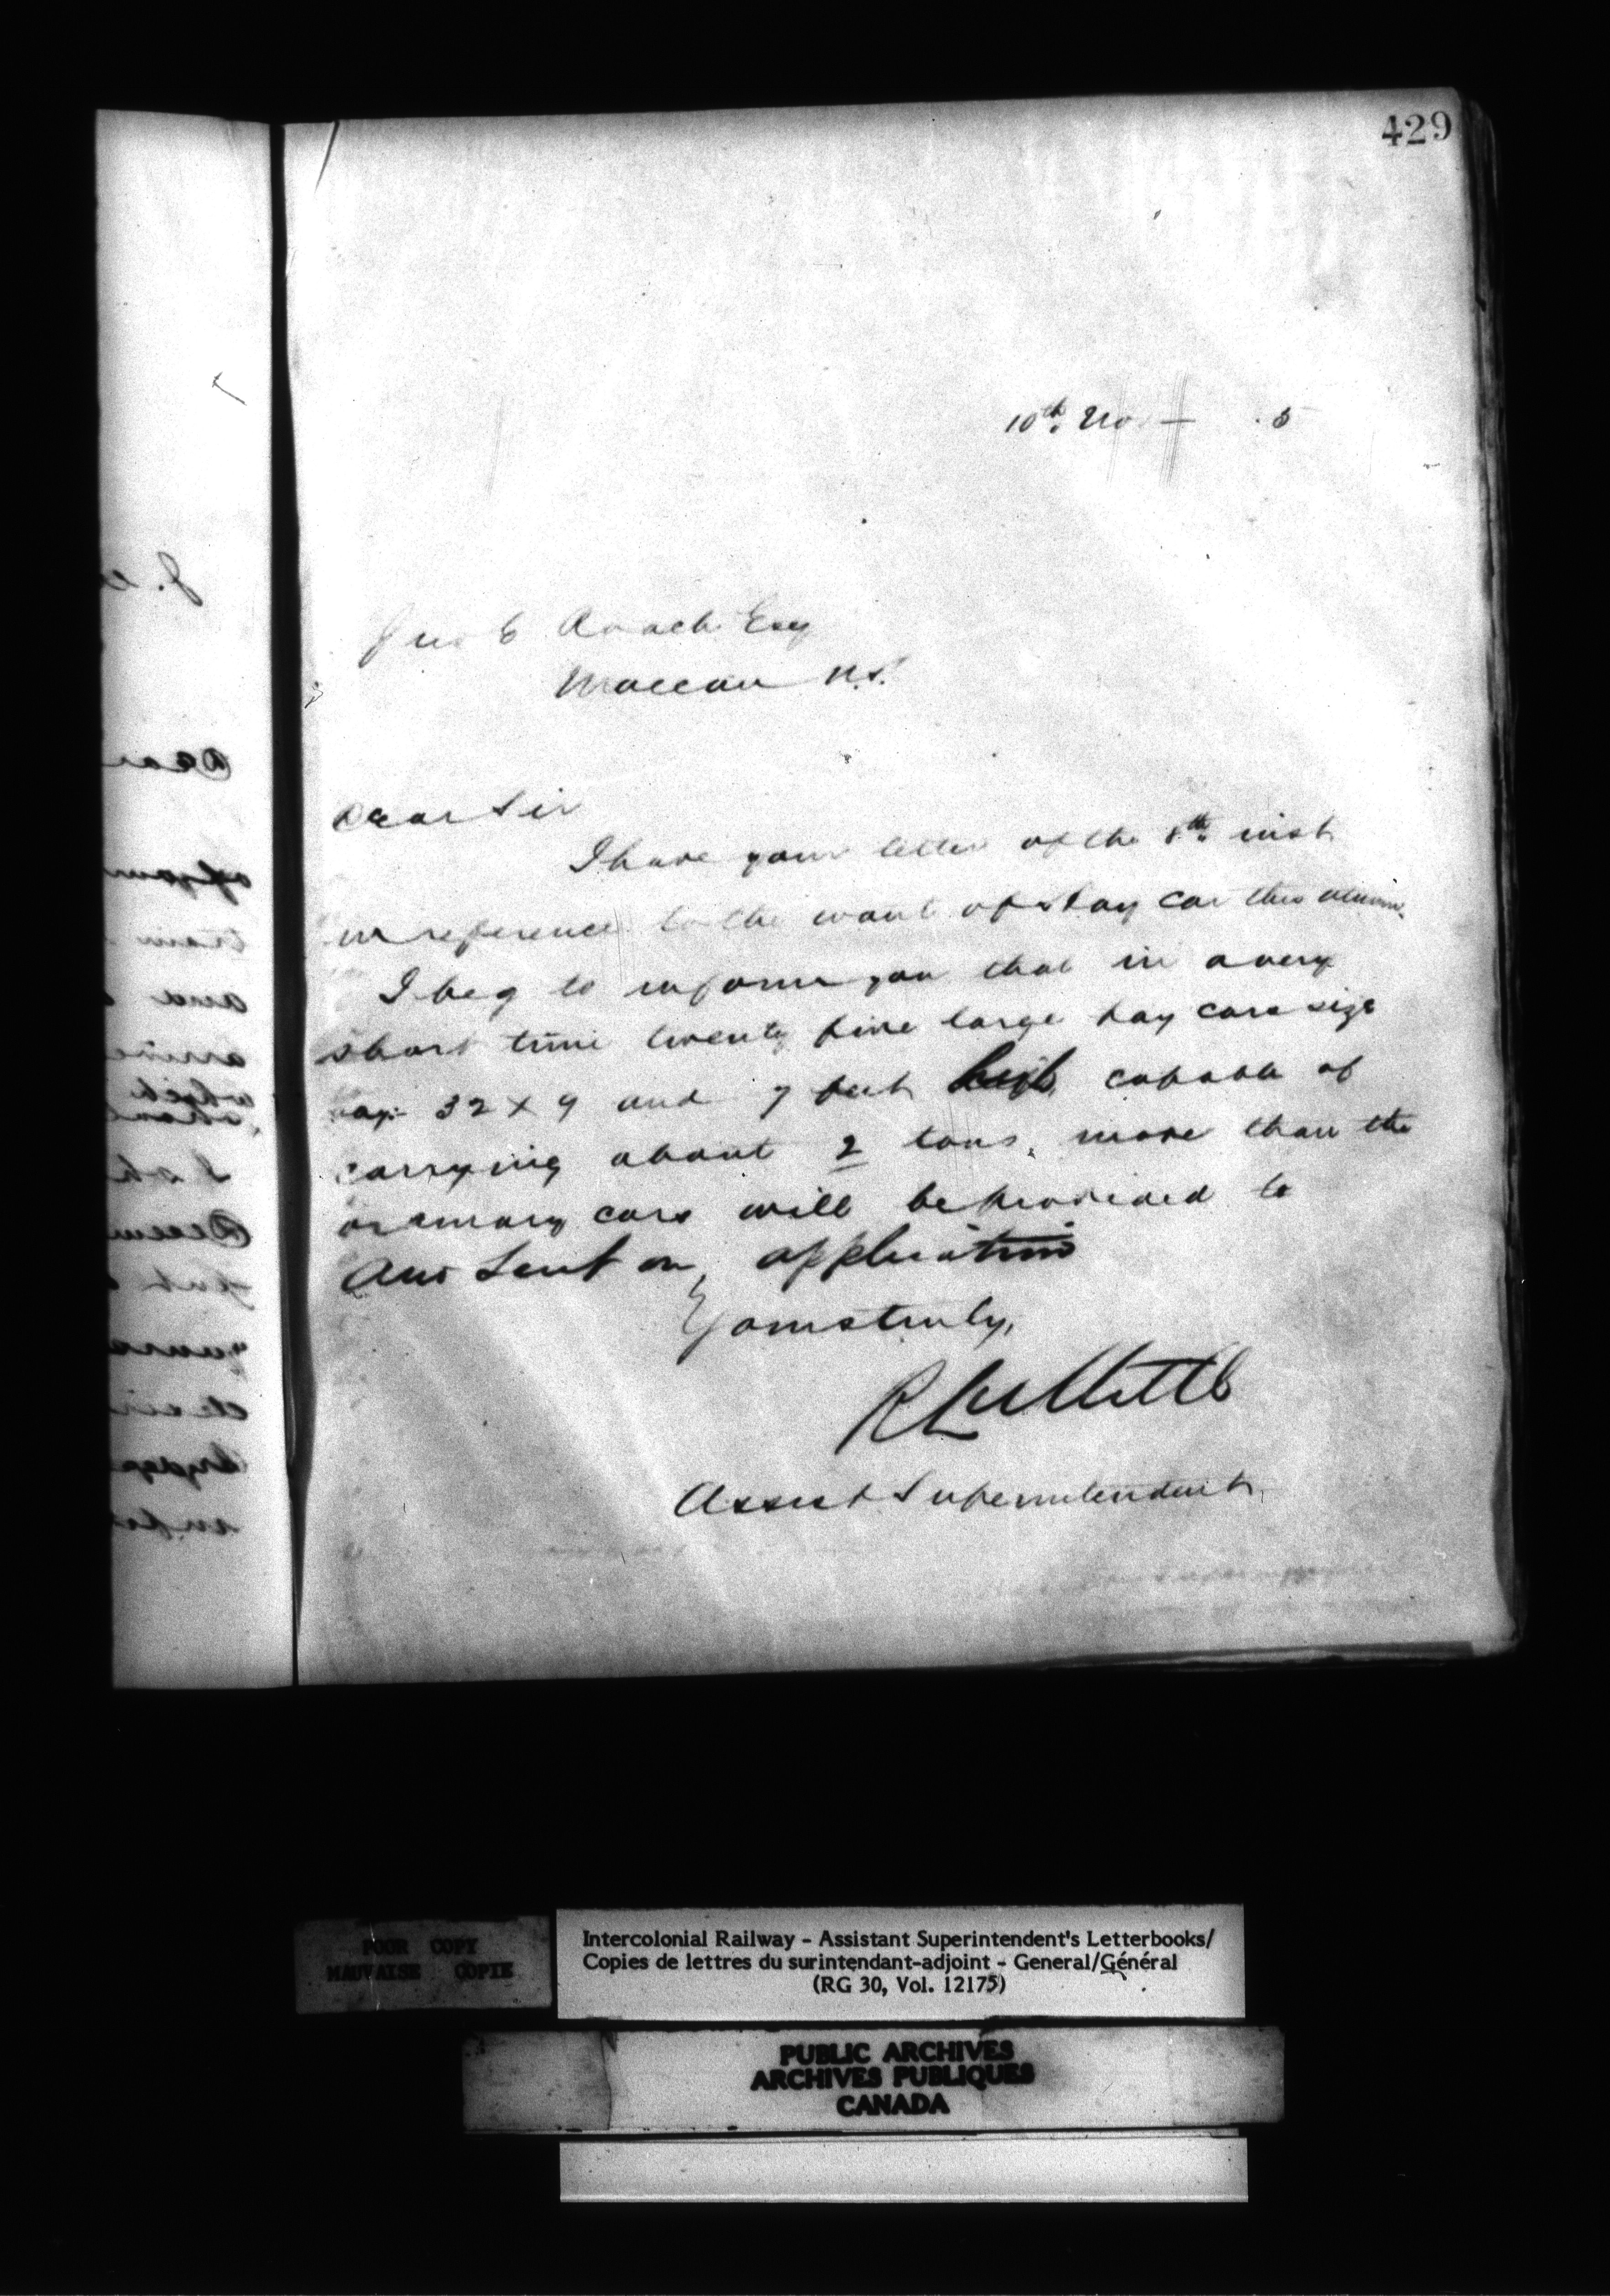 429
10th. No — 5
Roach Esq
Maccan N.S.
Dear Sir
I have your letter of the 8th. inst
in reference to the want of Hay car this
I beg to inform you that in a very
short time twenty five large hay cars size
say 32 x 9 and 7 feet high capable of
carrying about 2 tons, more than the
ordinary cars will be provided to
and sent on, application
Yours truly,
Assist Superintendent
POOR COPY
MAUVAISE COPIE
Intercolonial Railway - Assistant Superintendent's Letterbooks/
Copies de lettres du surintendant-adjoint - General/Général
(RG 30, Vol. 12175)
PUBLIC ARCHIVES
ARCHIVES PUBLIQUES
CANADA